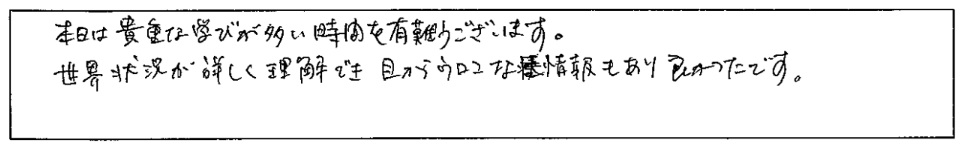 本日は貴重な学びが多い時間を有難うございます。
世界状況が詳しく理解でき目からウロコな情報もあり良かったです。